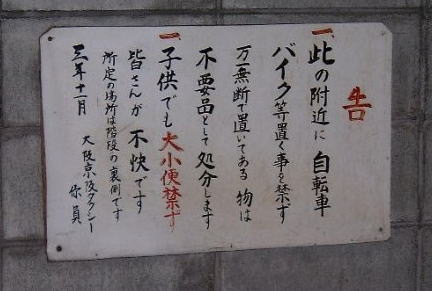 告
一、此の附近に自転車
バイク等置く事を禁ず
万一無断で置いてある物は
不要品として処分します
一、子供でも大小便禁ず
皆さんが不快です
所定の場所は階段の裏側です
三年十一月
大阪京阪タクシー